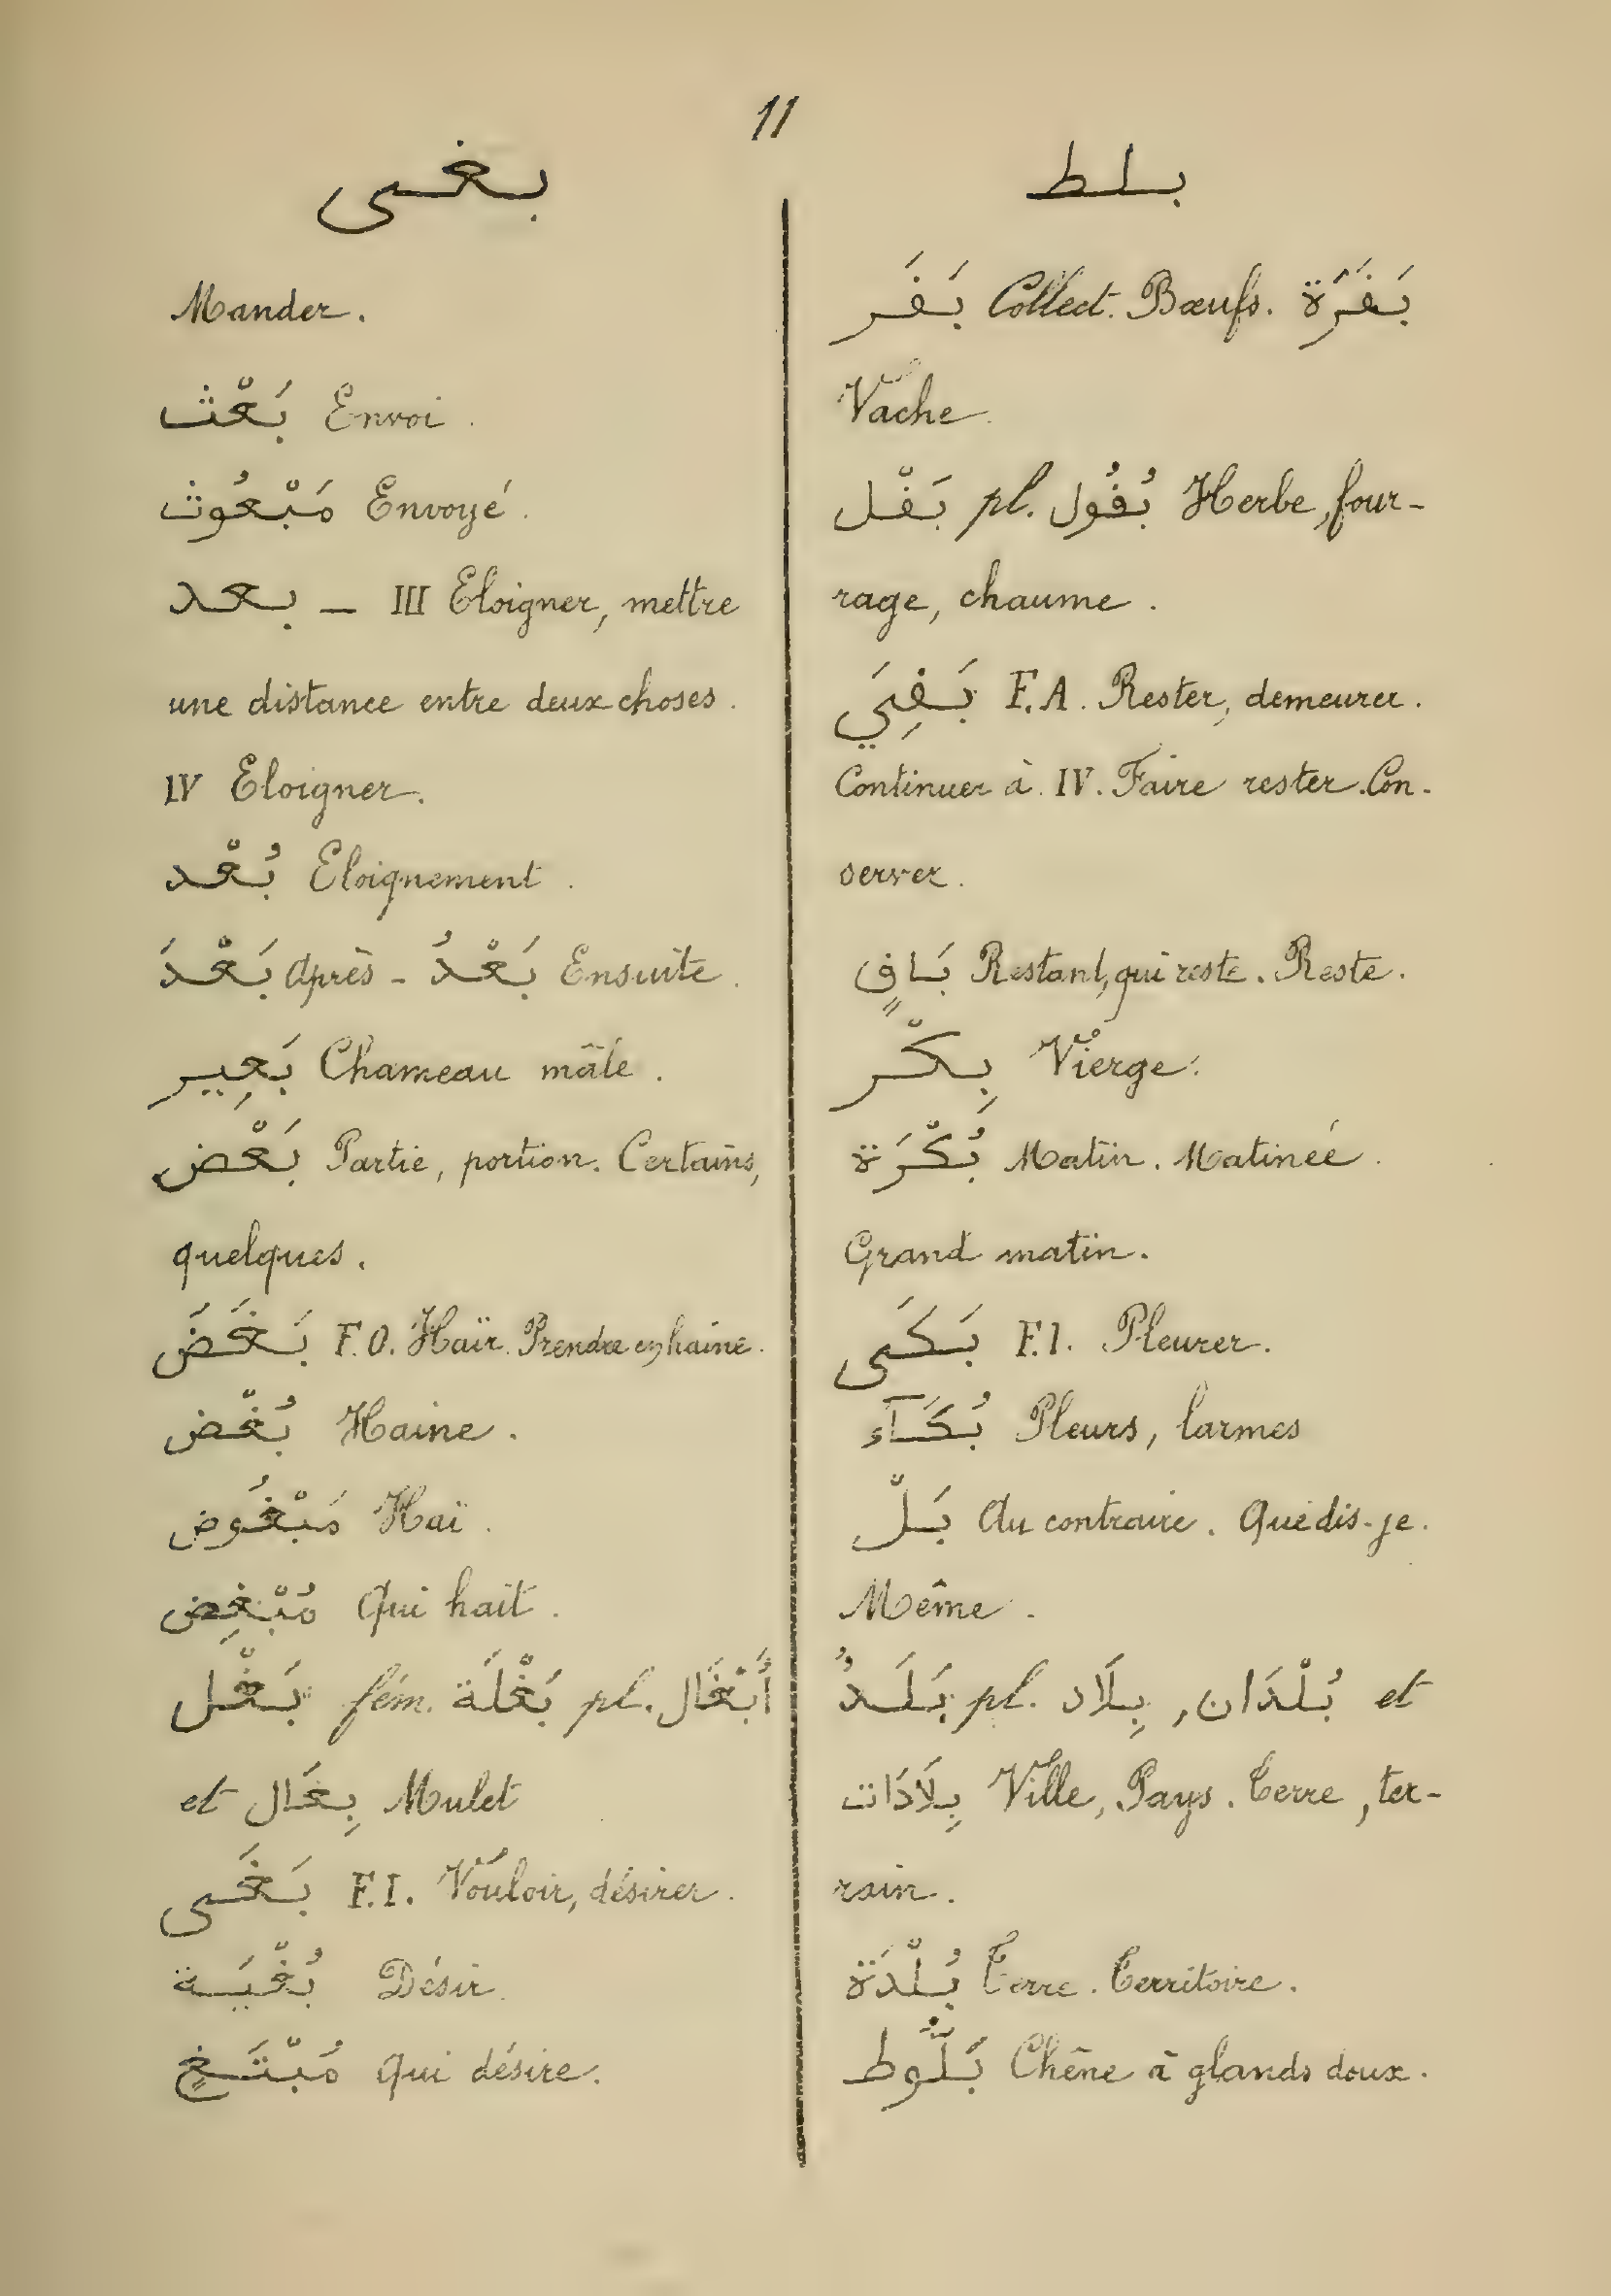 11
بغى
Mander.
بَعْث Envoi.
مَبْعُوث Envoyé.
بعد — III Eloigner, mettre
une distance entre deux choses.
IV Eloigner.
بُعْد Eloignement.
بَعْدَ Après - بَعْدُ Ensuite.
بَعِير Chameau mâle.
بَعْض Partie, portion. Certains,
quelques.
بَغَضَ F.O. Haïr. Prendre en haine.
بُغْض Haine.
مَبْغُوض Haï.
مُبْغِض Qui hait.
بَغْل fém. بَغْلَة pl. أَبْغَال
et بِغَال Mulet
بَغَى F.I. Vouloir, désirer.
بُغْيَة Désir.
مُبْتَغٍ Qui désire.
بلط
بَقَر Collect. Bœufs. بَقَرَة
Vache.
بَقْل pl. بُقُول Herbe, four-
rage, chaume.
بَقِيَ F.A. Rester, demeurer.
Continuer à. IV. Faire rester. Con-
server.
بَاقٍ Restant, qui reste. Reste.
بِكْر Vierge.
بُكْرَة Matin. Matinée.
Grand matin.
بَكَى F.I. Pleurer.
بُكَآء Pleurs, larmes
بَلْ Au contraire. Que dis-je.
Même.
بَلَدٌ pl. بِلَاد ,بُلْدَان et
بِلَادَات Ville, Pays. Terre, ter-
rain.
بُلْدَة Terre. Territoire.
بَلُّوط Chêne à glands doux.